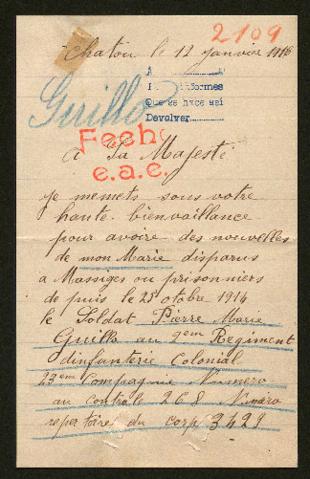 2109
Chatou le 12 janvier 1916
A
Informes
Que se hace sei
Devolver
Guillo
Fecho
e.a.e.
A Sa Majesté
je memets sous votre
haute bienvaillance
pour avoire des nouvelles
de mon Marie disparus
a Massiges ou prisonniers
de puis le 25 otobre 1914
le Soldat Pierre Marie
Guillo au 7em Regiment
dinfanterie Colonial
23em Compagnie Numero
au controle 268 Numero
repertaire du corp 3428